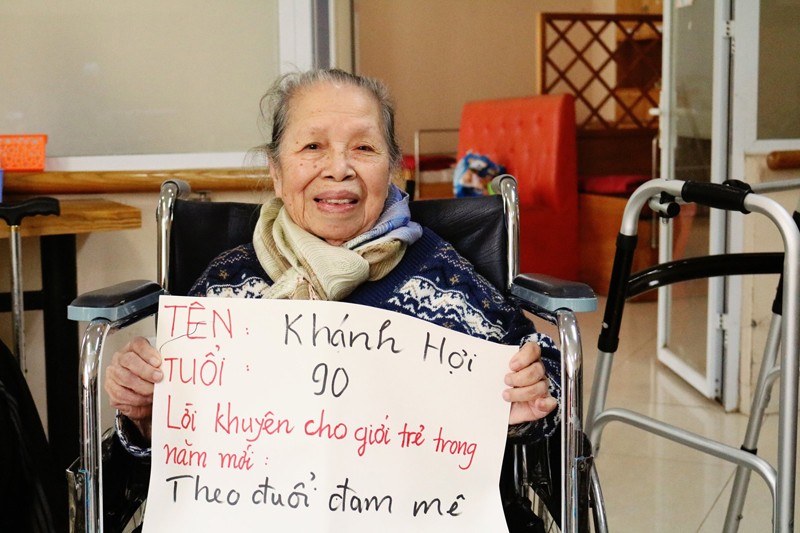 TÊN: Khánh Hợi
TUỔI: 90
Lời khuyên cho giới trẻ trong
năm mới:
Theo đuổi đam mê